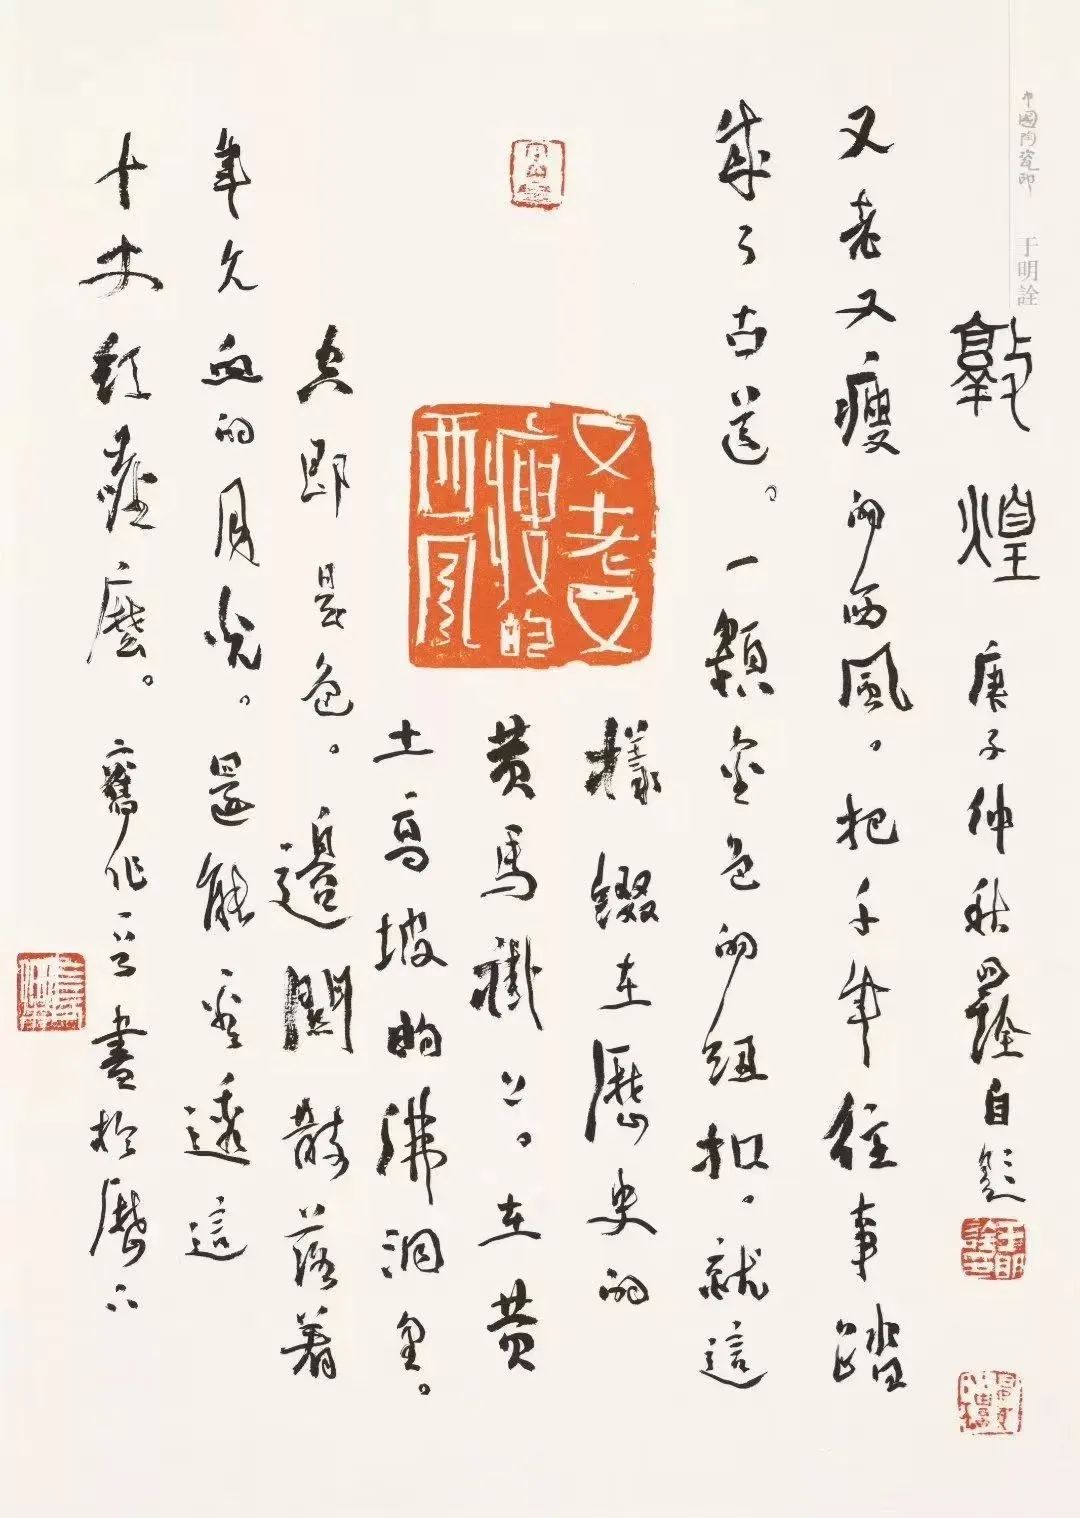 中國陶瓷印 于明詮
敦煌 庚子仲秋明詮自題
又老又瘦的西風，把千年往事踏
成了古道。一顆金色的紐扣，就這
樣綴在歷史的
黄馬褂上。在黄
土高坡的佛洞里。
空即是色。邊關散落着
年久血的月光。還能透這
十薩麼。舊作一首書於歷下
又老又
瘦的
西風